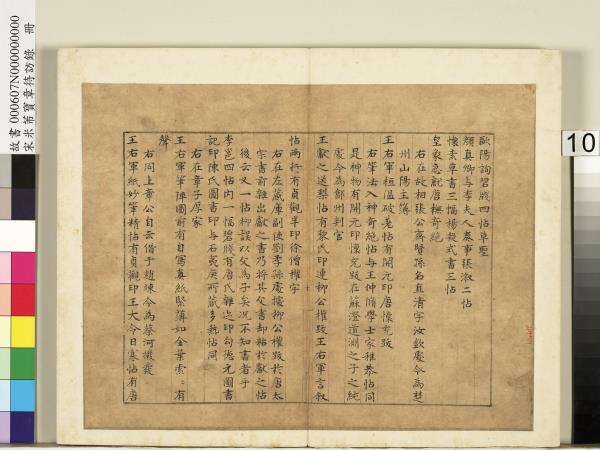 歐陽詢碧牋四帖草聖
顏真卿與李大夫奏事張溆二帖
懷素草書三幅楊凝式書三帖
皇象急就唐摸奇絕
右在故相張公齊賢孫名直清字汝欽處今為楚
州山陽主簿
王右軍桓溫破羌帖有開元印唐懷充跋
右筆法入神奇絕帖與王仲脩學士家稚恭帖同
是神物有開元印懷充跋在蘇澄道淵之子之純
處今為鄆州判官
王獻之送梨帖有黎氏印連柳公權跋王右軍言叙
帖兩行有貞觀半印徐僧權字
右在左藏庫副使劉季孫處據柳公權跋於唐太
宗書前雜出獻之書乃將其父書却粘於獻之帖
後云又一帖柳誤以父為子矣况不知書者乎
李邕四帖內一幅碧牋有唐氏雜迹印勾德元圖書
記印陳氏圖書印與石夷庚所藏多熱帖同
右在章子厚家
王右軍筆陣圖前有自寫真紙緊薄如金葉索〻有
聲
右同上章公自云借于趙竦今為蔡河撥發
王右軍紙妙筆精帖有貞觀印王大今日寒帖有唐
故書 000607N000000000
宋米芾寶章待訪錄 冊
10